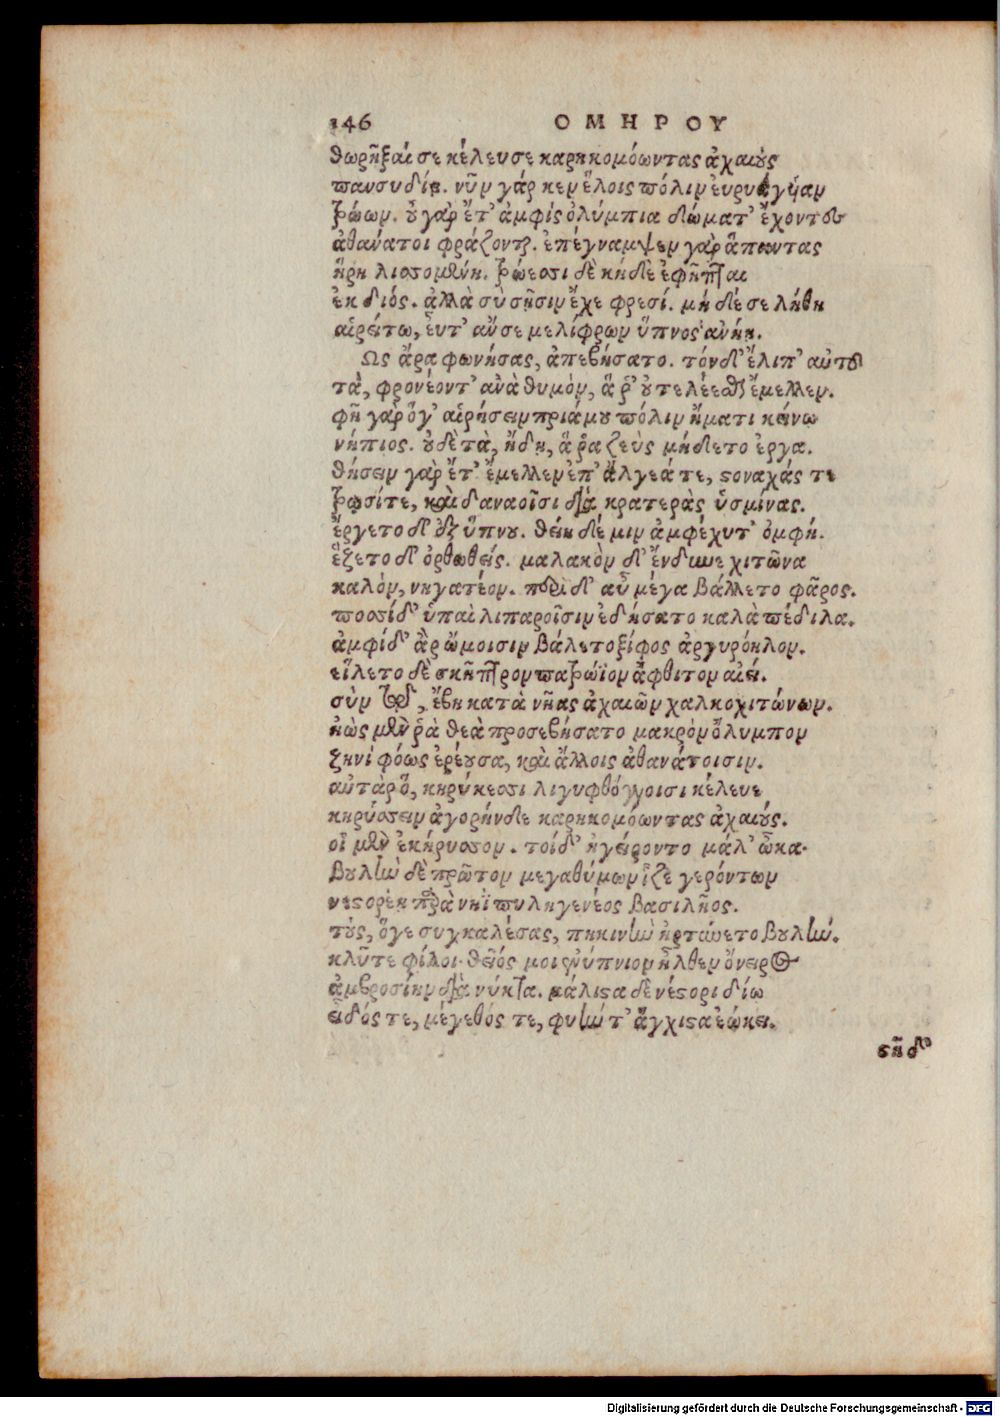 146 ΟΜΗΡΟΥ
θωρῆξαί σε κέλευσε καρηκομόωντας ἀχαιοὺς
πανσυδίῃ. νῦν γάρ κεν ἕλοις πόλιν εὐρυάγυιαν
τρώων. οὐ γὰρ ἔτ' ἀμφὶς ὀλύμπια δώματ' ἔχοντες
ἀθάνατοι φράζονται. ἐπέγναμψεν γὰρ ἅπαντας
ἥρη λισσομένη. τρώεσσι δὲ κήδε' ἐφῆπται
ἐκ διός. ἀλλὰ σὺ σῇσιν ἔχε φρεσί. μή δέ σε λήθη
αἱρείτω, εὖτ' ἄν σε μελίφρων ὕπνος ἀνήῃ.
Ως ἄρα φωνήσας, ἀπεβήσατο. τὸν δ' ἔλιπ' αὐτοῦ
τὰ, φρονέοντ' ἀνὰ θυμὸν, ἅ ῥ' οὐ τελέεσθαι ἔμελλεν.
φῆ γὰρ ὅγ' αἱρήσειν πριάμου πόλιν ἤματι κείνω
νήπιος. οὐδὲ τὰ, ἤδη, ἅ ῥα ζεὺς μήδετο ἔργα.
θήσειν γὰρ ἔτ' ἔμελλεν ἐπ' ἄλγεά τε, στοναχάς τε
τρωσίτε, καὶ δαναοῖσι διὰ κρατερὰς ὑσμίνας.
ἔργετο δ' ἐξ ὕπνου. θείη δέ μιν ἀμφέχυτ' ὀμφή.
ἕζετο δ' ὀρθωθείς. μαλακὸν δ' ἔνδυνε χιτῶνα
καλὸν, νηγατέον. περὶ δ' αὖ μέγα βάλλετο φᾶρος.
ποσσίδ' ὑπαὶ λιπαροῖσιν ἐδήσατο καλὰ πέδιλα.
ἀμφίδ' ἂρ ὤμοισιν βάλετο ξίφος ἀργυρόηλον.
εἵλετο δὲ σκῆπτρον πατρώϊον ἄφθιτον αἰεί.
σὺν τῷ, ἔβη κατὰ νῆας ἀχαιῶν χαλκοχιτώνων.
ἠὼς μὲν ῥὰ θεὰ προσεβήσατο μακρὸν ὄλυμπον
ζηνὶ φόως ἐρέουσα, καὶ ἄλλοις ἀθανάτοισιν.
αὐτὰρ ὃ, κηρύκεσσι λιγυφθόγγοισι κέλευε
κηρύσσειν ἀγορήνδε καρηκομόωντας ἀχαιούς.
οἱ μὲν ἐκήρυσσον. τοίδ' ἠγείροντο μάλ' ὦκα.
βουλὴν δὲ πρῶτον μεγαθύμων ἷζε γερόντων
νεστορέῃ παρὰ νηῒ πυληγενέος βασιλῆος.
τοὺς, ὅγε συγκαλέσας, πηκινὴν ἠρτύνετο βουλήν.
κλῦτε φίλοι. θεῖός μοι ἐνύπνιον ἦλθεν ὄνειρος
ἀμβροσίην διὰ νύκτα. μάλιστα δὲ νέστορι δίω
εἶδός τε, μέγεθός τε, φυήν τ' ἄγχιστα ἐώκει.
στῆ δ'
Digitalisierung gefördert durch die Deutsche Forschungsgemeinschaft - DFG